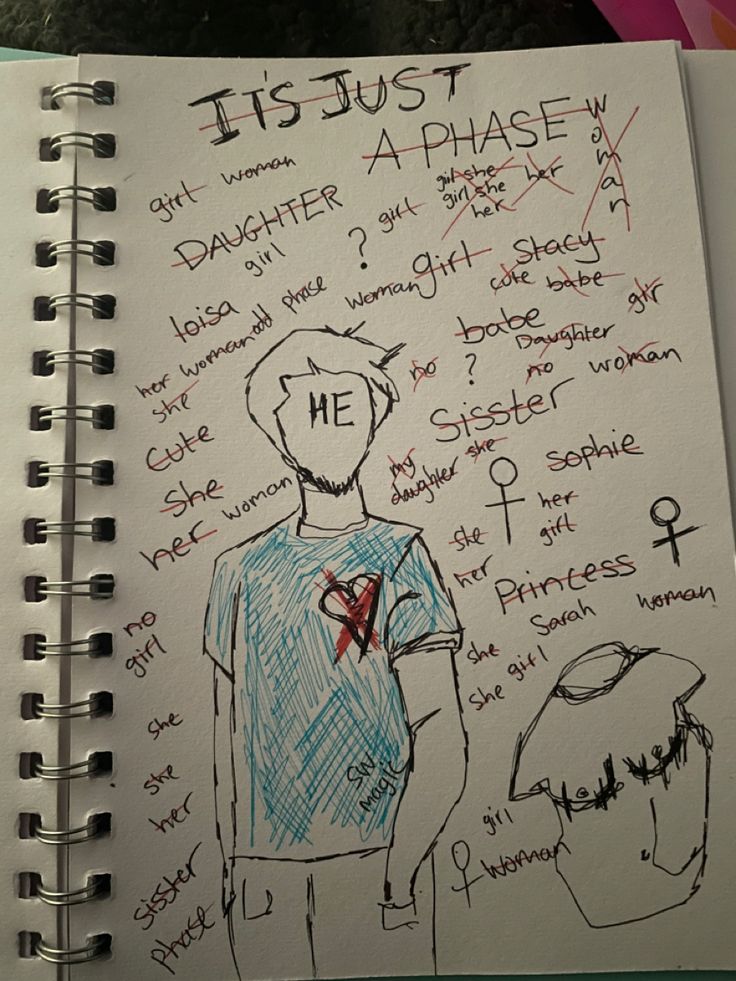 IT'S JUST
A PHASE
Woman
girl woman
girl she
girl she
her
her
DAUGHTER
girl
girl
?
girl
Stacy
cute babe
loisa
odd phase
woman
babe
Daughter
gir
her woman
she
no
?
no
woman
HE
Sisster
Cute
my
daughter
she
Sophie
She
her
woman
she
her
girl
her
Princess
Sarah
woman
no
girl
she
she girl
she
she
her
SW.
magic
girl
woman
Sisster
Phase